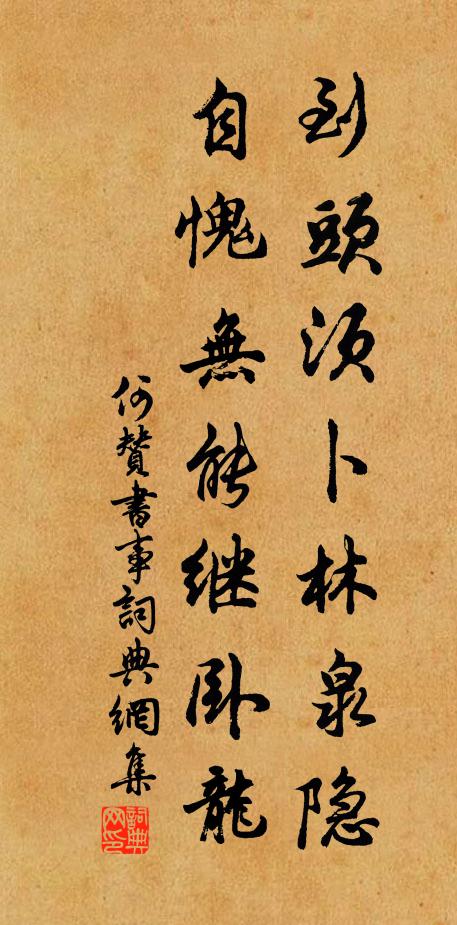 到頭须卜林泉隐
自愧無能继卧龍
何贊書事詞典網集
詞典网印